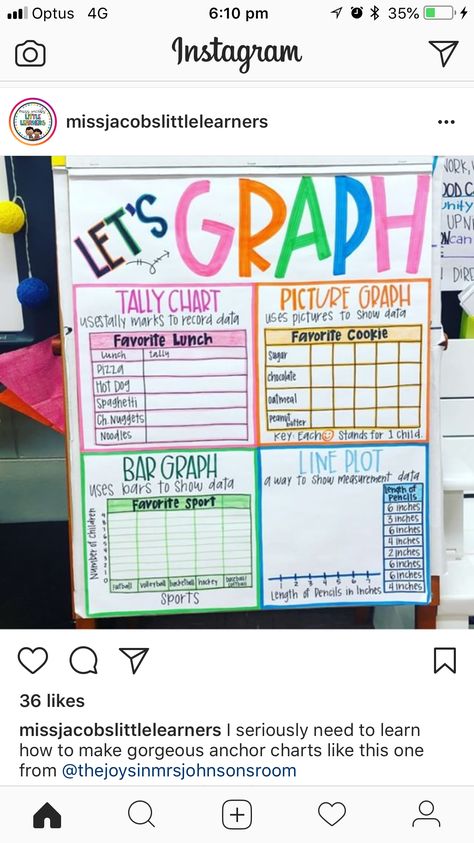 Optus 4G 6:10 pm 35%
Instagram
missjacobslittlelearners
LET'S GRAPH
TALLY CHART
uses tally marks to record data
Favorite Lunch
Lunch tally
Pizza
Hot Dog
Spaghetti
Ch. Nuggets
Noodles
PICTURE GRAPH
uses pictures to show data
Favorite Cookie
Sugar
chocolate
oatmeal
Peanut butter
Key: Each stands for 1 child.
BAR GRAPH
uses bars to show data
Favorite Sport
Number of Children
9
8
7
6
5
4
3
2
1
0
football volleyball basketball hockey baseball/softball
Sports
LINE PLOT
a way to show measurement data
length of Pencils
6 inches
3 inches
6 inches
4 inches
2 inches
6 inches
6 inches
4 inches
1 2 3 4 5 6 7
Length of Pencils in Inches
36 likes
missjacobslittlelearners I seriously need to learn
how to make gorgeous anchor charts like this one
from @thejoysinmrsjohnsonsroom